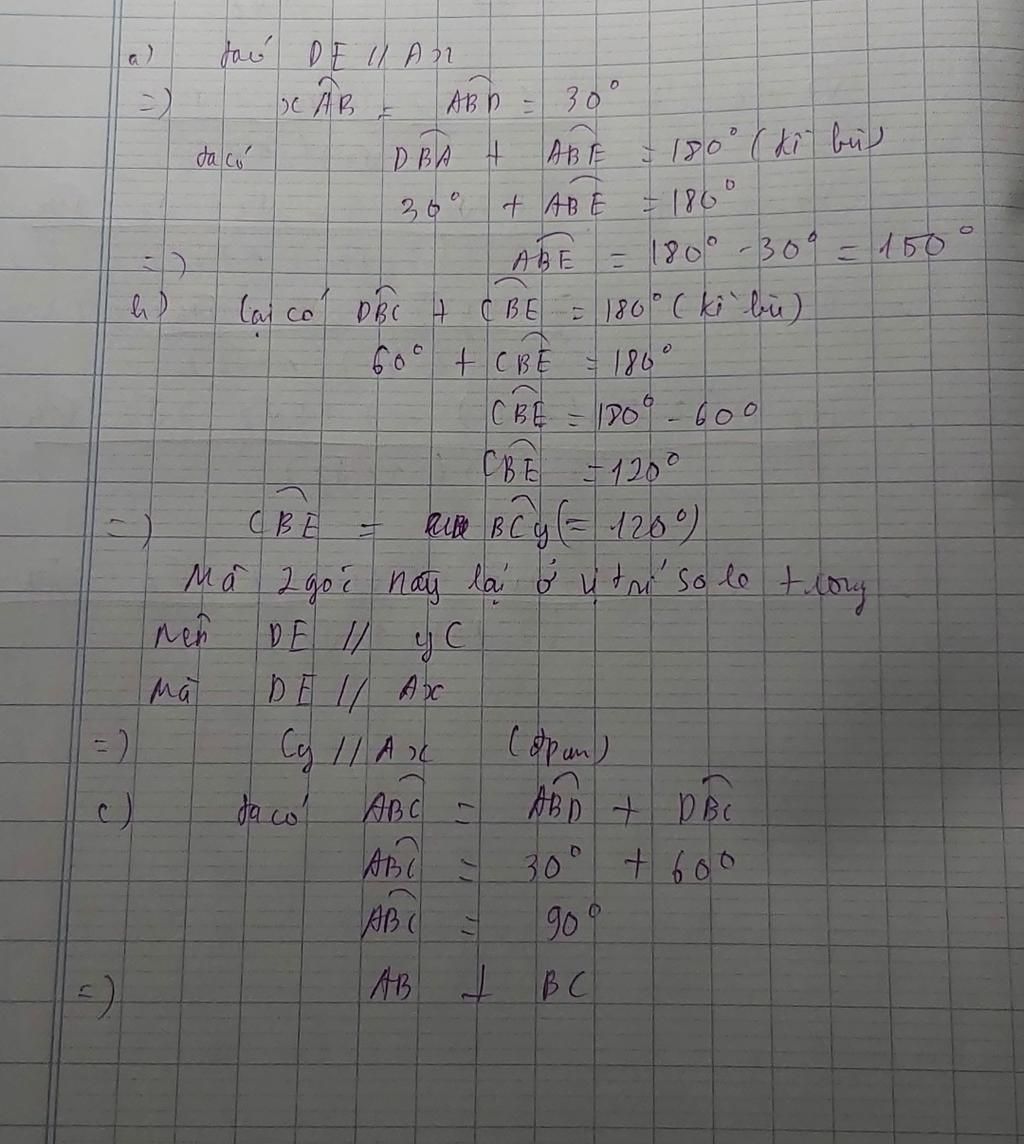 a) ta có DE // Ax
=) xÂB = AB̂D = 30°
ta có DB̂A + AB̂E = 180° (kề bù)
30° + AB̂E = 180°
=) AB̂E = 180° - 30° = 150°
b) lại có DB̂C + CB̂E = 180° (kề bù)
60° + CB̂E = 180°
CB̂E = 180° - 60°
CB̂E = 120°
=) CB̂E = BĈy (= 120°)
Mà 2 góc này lại ở vị trí so le trong
nên DE // yC
Mà DE // Ax
=) Cy // Ax (đpcm)
c) ta có AB̂C = AB̂D + DB̂C
AB̂C = 30° + 60°
AB̂C = 90°
=) AB ⊥ BC